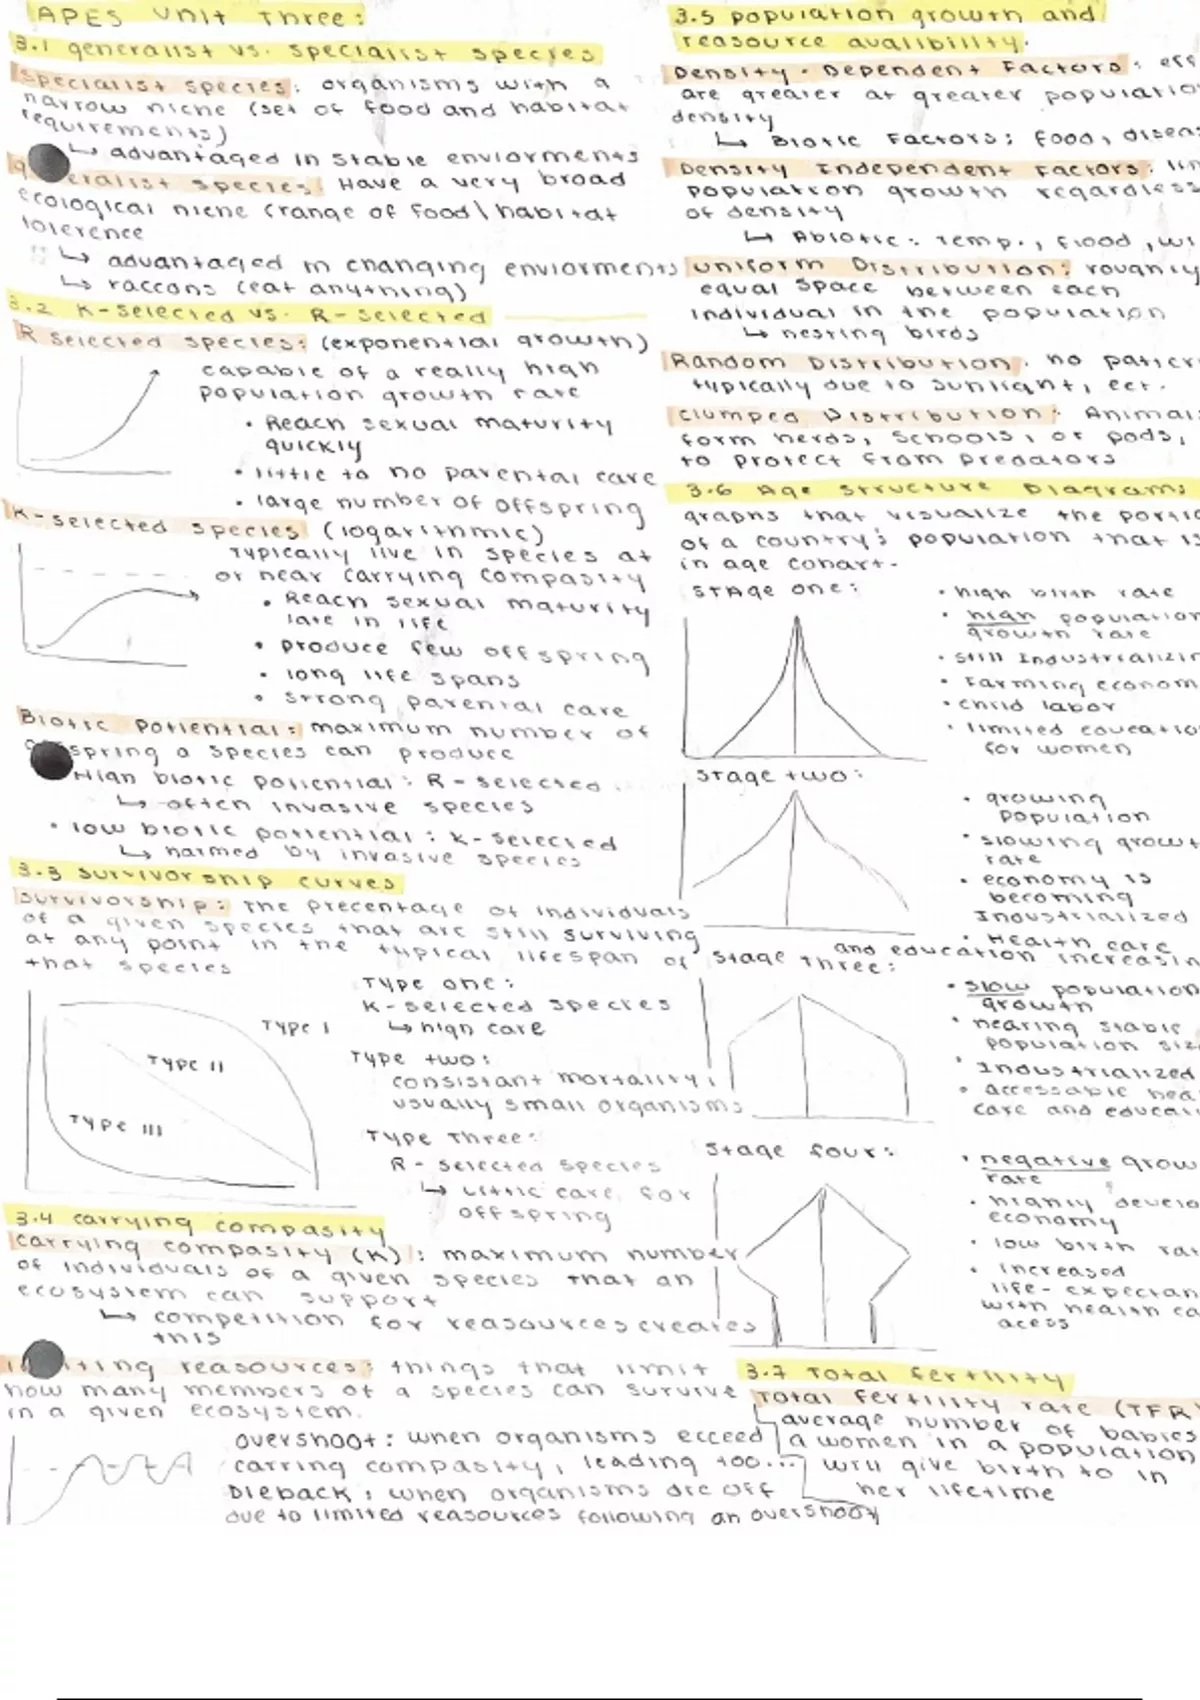 APES Unit Three:
3.1 generalist vs. specialist species
Specialist species: organisms with a
narrow niche (set of food and habitat
requirements)
↳ advantaged in stable enviorments
eralist species: Have a very broad
ecological niche (range of food \ habitat
tolerence
↳ advantaged in changing enviorments
↳ raccons (eat anything)
3.2 K-selected vs. R-selected
R selected species: (exponential growth)
capable of a really high
population growth rate
• Reach sexual maturity
quickly
• little to no parental care
• large number of offspring
K-selected species (logarithmic)
Typically live in species at
or near carrying compasity
• Reach sexual maturity
late in life
• produce few offspring
• long life spans
• strong parental care
Biotic Potiential: maximum number of
spring a species can produce
High biotic potiential: R-selected
↳ often invasive species
• low biotic potiential: K-selected
↳ harmed by invasive species
3.3 survivorship curves
survivorship: the precentage of individuals
of a given species that are still surviving
at any point in the typical lifespan of
that species
Type I
Type II
Type III
Type one:
K-selected species
↳ high care
Type two:
consistant mortality,
usually small organisms
Type three:
R-selected species
↳ little care for
offspring
3.4 carrying compasity
carrying compasity (K): maximum number
of individuals of a given species that an
ecosystem can support
↳ competition for reasources creates
this
iting reasources: things that limit
how many members of a species can survive
in a given ecosystem.
overshoot: when organisms ecceed
carring compasity, leading too...
Dieback: when organisms die off
due to limited reasources following an overshoot
3.5 population growth and
reasource avalibility.
Density-Dependent Factors: eff
are greater at greater populatio
density
↳ Biotic Factors: food, diseas
Density Independent Factors: lim
population growth regardless
of density
↳ Abiotic: temp., flood, wi
uniform Distribution: roughly
equal space between each
individual in the population
↳ nesting birds
Random Distribution: no patter
typically due to sunlight, ect.
clumped Distribution: Animals
form herds, schools, or pods,
to protect from predators
3.6 Age structure Diagrams
graphs that visualize the portio
of a country's population that is
in age cohart.
Stage one:
• high birth rate
• high population
growth rate
• still Industrializin
• Farming econom
• child labor
• limited educatio
for women
stage two:
• growing
population
• slowing growt
rate
• economy is
becoming
Industrialized
• Health care
and education increasin
stage three:
• slow population
growth
• nearing stable
population siz
• Industrialized
• accessable hea
care and educati
stage four:
• negative grow
rate
• highly develo
economy
• low birth rat
• increased
life-expectan
with health ca
acess
3.7 Total fertility
Total fertility rate (TFR)
average number of babies
a women in a population
will give birth to in
her lifetime